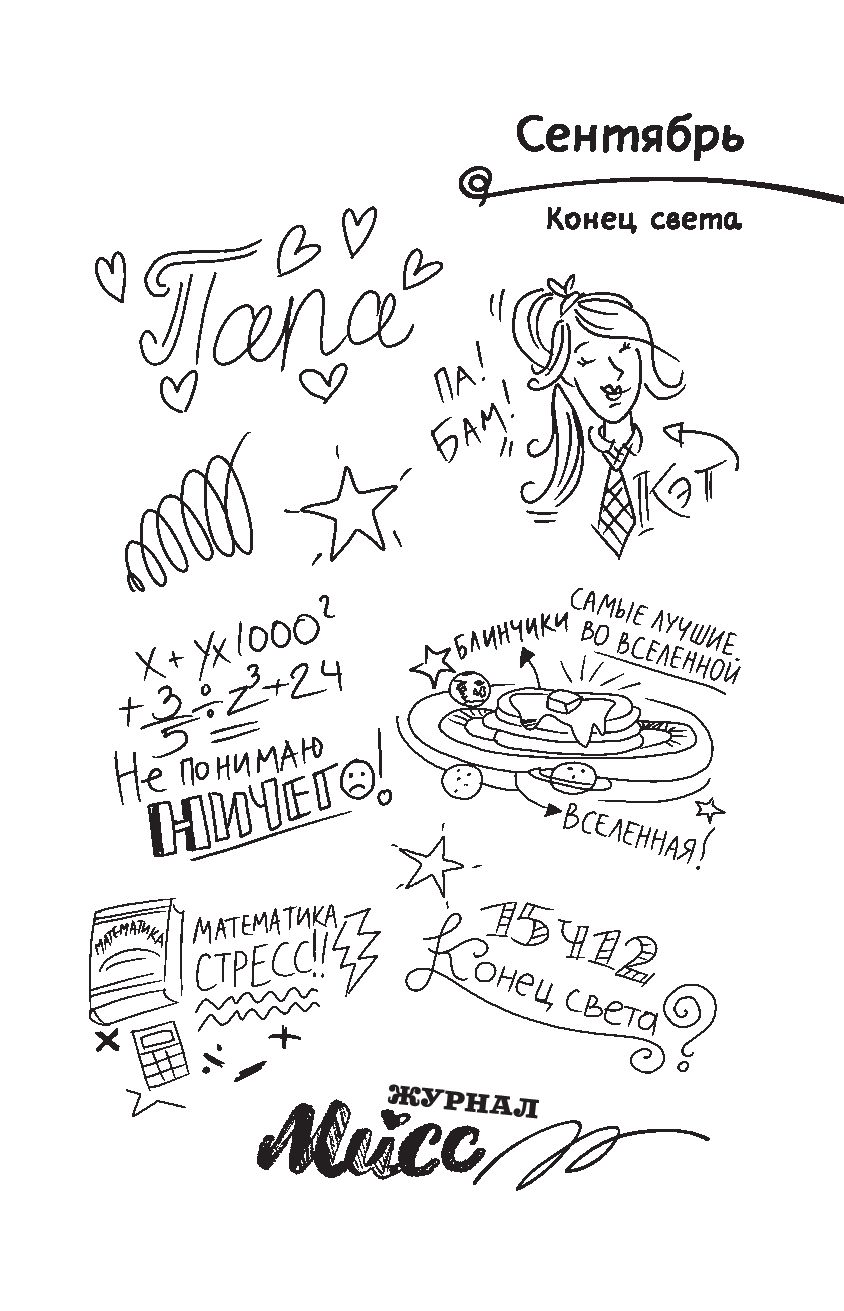 Сентябрь
Конец света
Папа
ПА!
БАМ!
КЭТ
X + Yx1000²
+ 3/5 ÷ Z³ + 24
Не понимаю
НИЧЕГО!
БЛИНЧИКИ
САМЫЕ ЛУЧШИЕ
ВО ВСЕЛЕННОЙ
ВСЕЛЕННАЯ!
МАТЕМАТИКА
МАТЕМАТИКА
СТРЕСС!!
15 ч 12
Конец света?
ЖУРНАЛ
Мисс